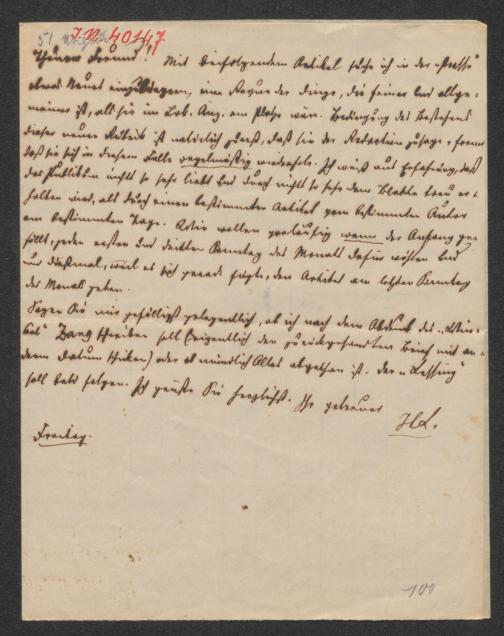 51
I.N. 40147
Theurer Freund! Mit beifolgendem Artikel suche ich in der "Presse"
etwas Neues einzubürgern, eine Revue der Dinge, die feiner und allge-
meiner ist, als sie im Lob. Anz. am Platze wäre. Bedingung des Bestehens
dieser neuen Rubrik ist natürlich zuerst, daß sie der Redaction zusage,
daß sie sich in diesem Falle regelmäßig wiederhole. Ich weiß aus Erfahrung, daß
das Publikum nichts so sehr liebt und durch nichts so sehr dem Blatte treu er-
halten wird, als durch einen bestimmten Artikel vom bestimmten Autor
am bestimmten Tage. Wir wollen vorläufig wenn der Anfang ge-
fällt, jeden ersten und dritten Sonntag des Monats dafür wählen und
nur diesmal, weil es sich gerade fügte, den Artikel am letzten Sonntag
des Monats geben.
Sagen Sie mir gefälligst gelegentlich, ob ich nach dem Abdruck des
Zang schreiben soll (eigentlich den zurückgesandten Brief mit an-
derem Datum schicken) oder ob mündlich Alles abgethan ist. Der "Lessing"
soll bald folgen. Ich grüße Sie herzlichst. Ihr getreuer
HL.
Freitag.
100